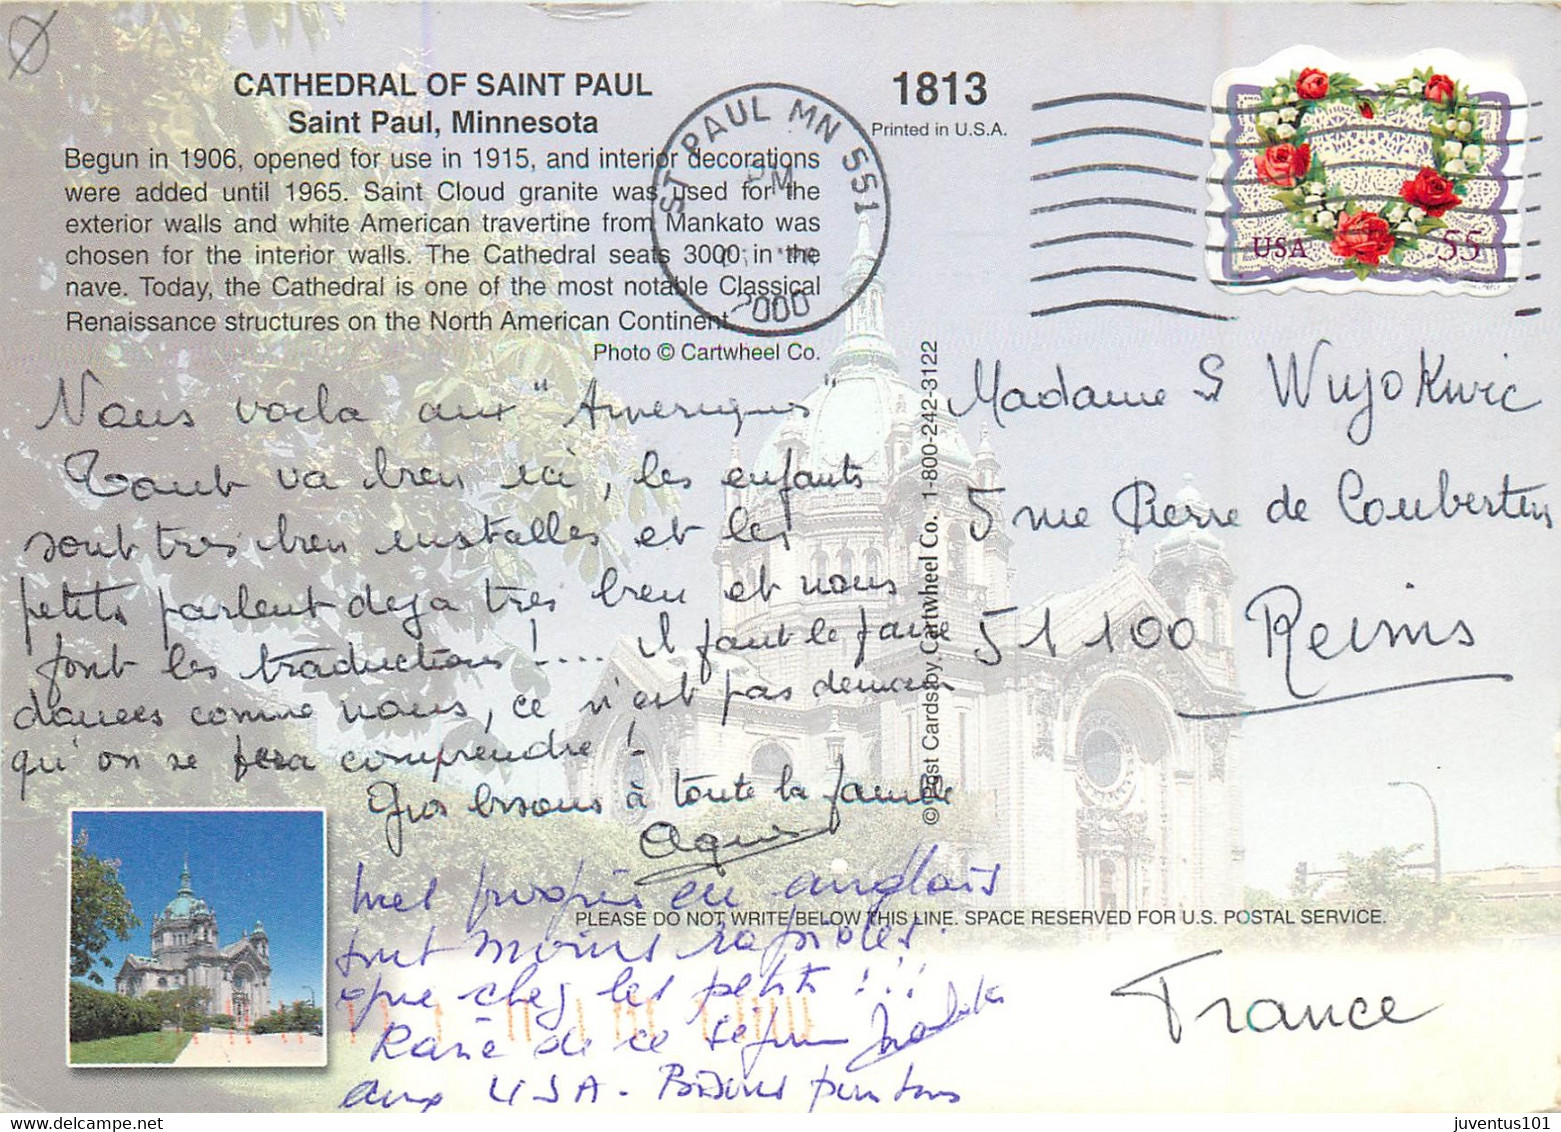 CATHEDRAL OF SAINT PAUL
Saint Paul, Minnesota
Begun in 1906, opened for use in 1915, and interior decorations
were added until 1965. Saint Cloud granite was used for the
exterior walls and white American travertine from Mankato was
chosen for the interior walls. The Cathedral seats 3000 in the
nave. Today, the Cathedral is one of the most notable Classical
Renaissance structures on the North American Continent.
Photo © Cartwheel Co.
1813
Printed in U.S.A.
ST PAUL MN 551
PM
2000
USA 55
Nous voila aux "Ameriques"
Tout va bien ici, les enfants
sont tres bien installes et les
petits parlent deja tres bien et nous
font les traductions !.... il faut le faire
comme nous, ce n'est pas demain
qu'on se fera comprendre !
Gros bisous à toute la famille
Agnes
mes progrès en anglais
sont moins rapides
que chez les petits !!!
Ravie de ce séjour
aux USA - Bisous
© Post Cards by Cartwheel Co. 1-800-242-3122
Madame S Wujokwic
5 rue Pierre de Coubertin
51100 Reims
PLEASE DO NOT WRITE BELOW THIS LINE. SPACE RESERVED FOR U.S. POSTAL SERVICE.
France
juventus101